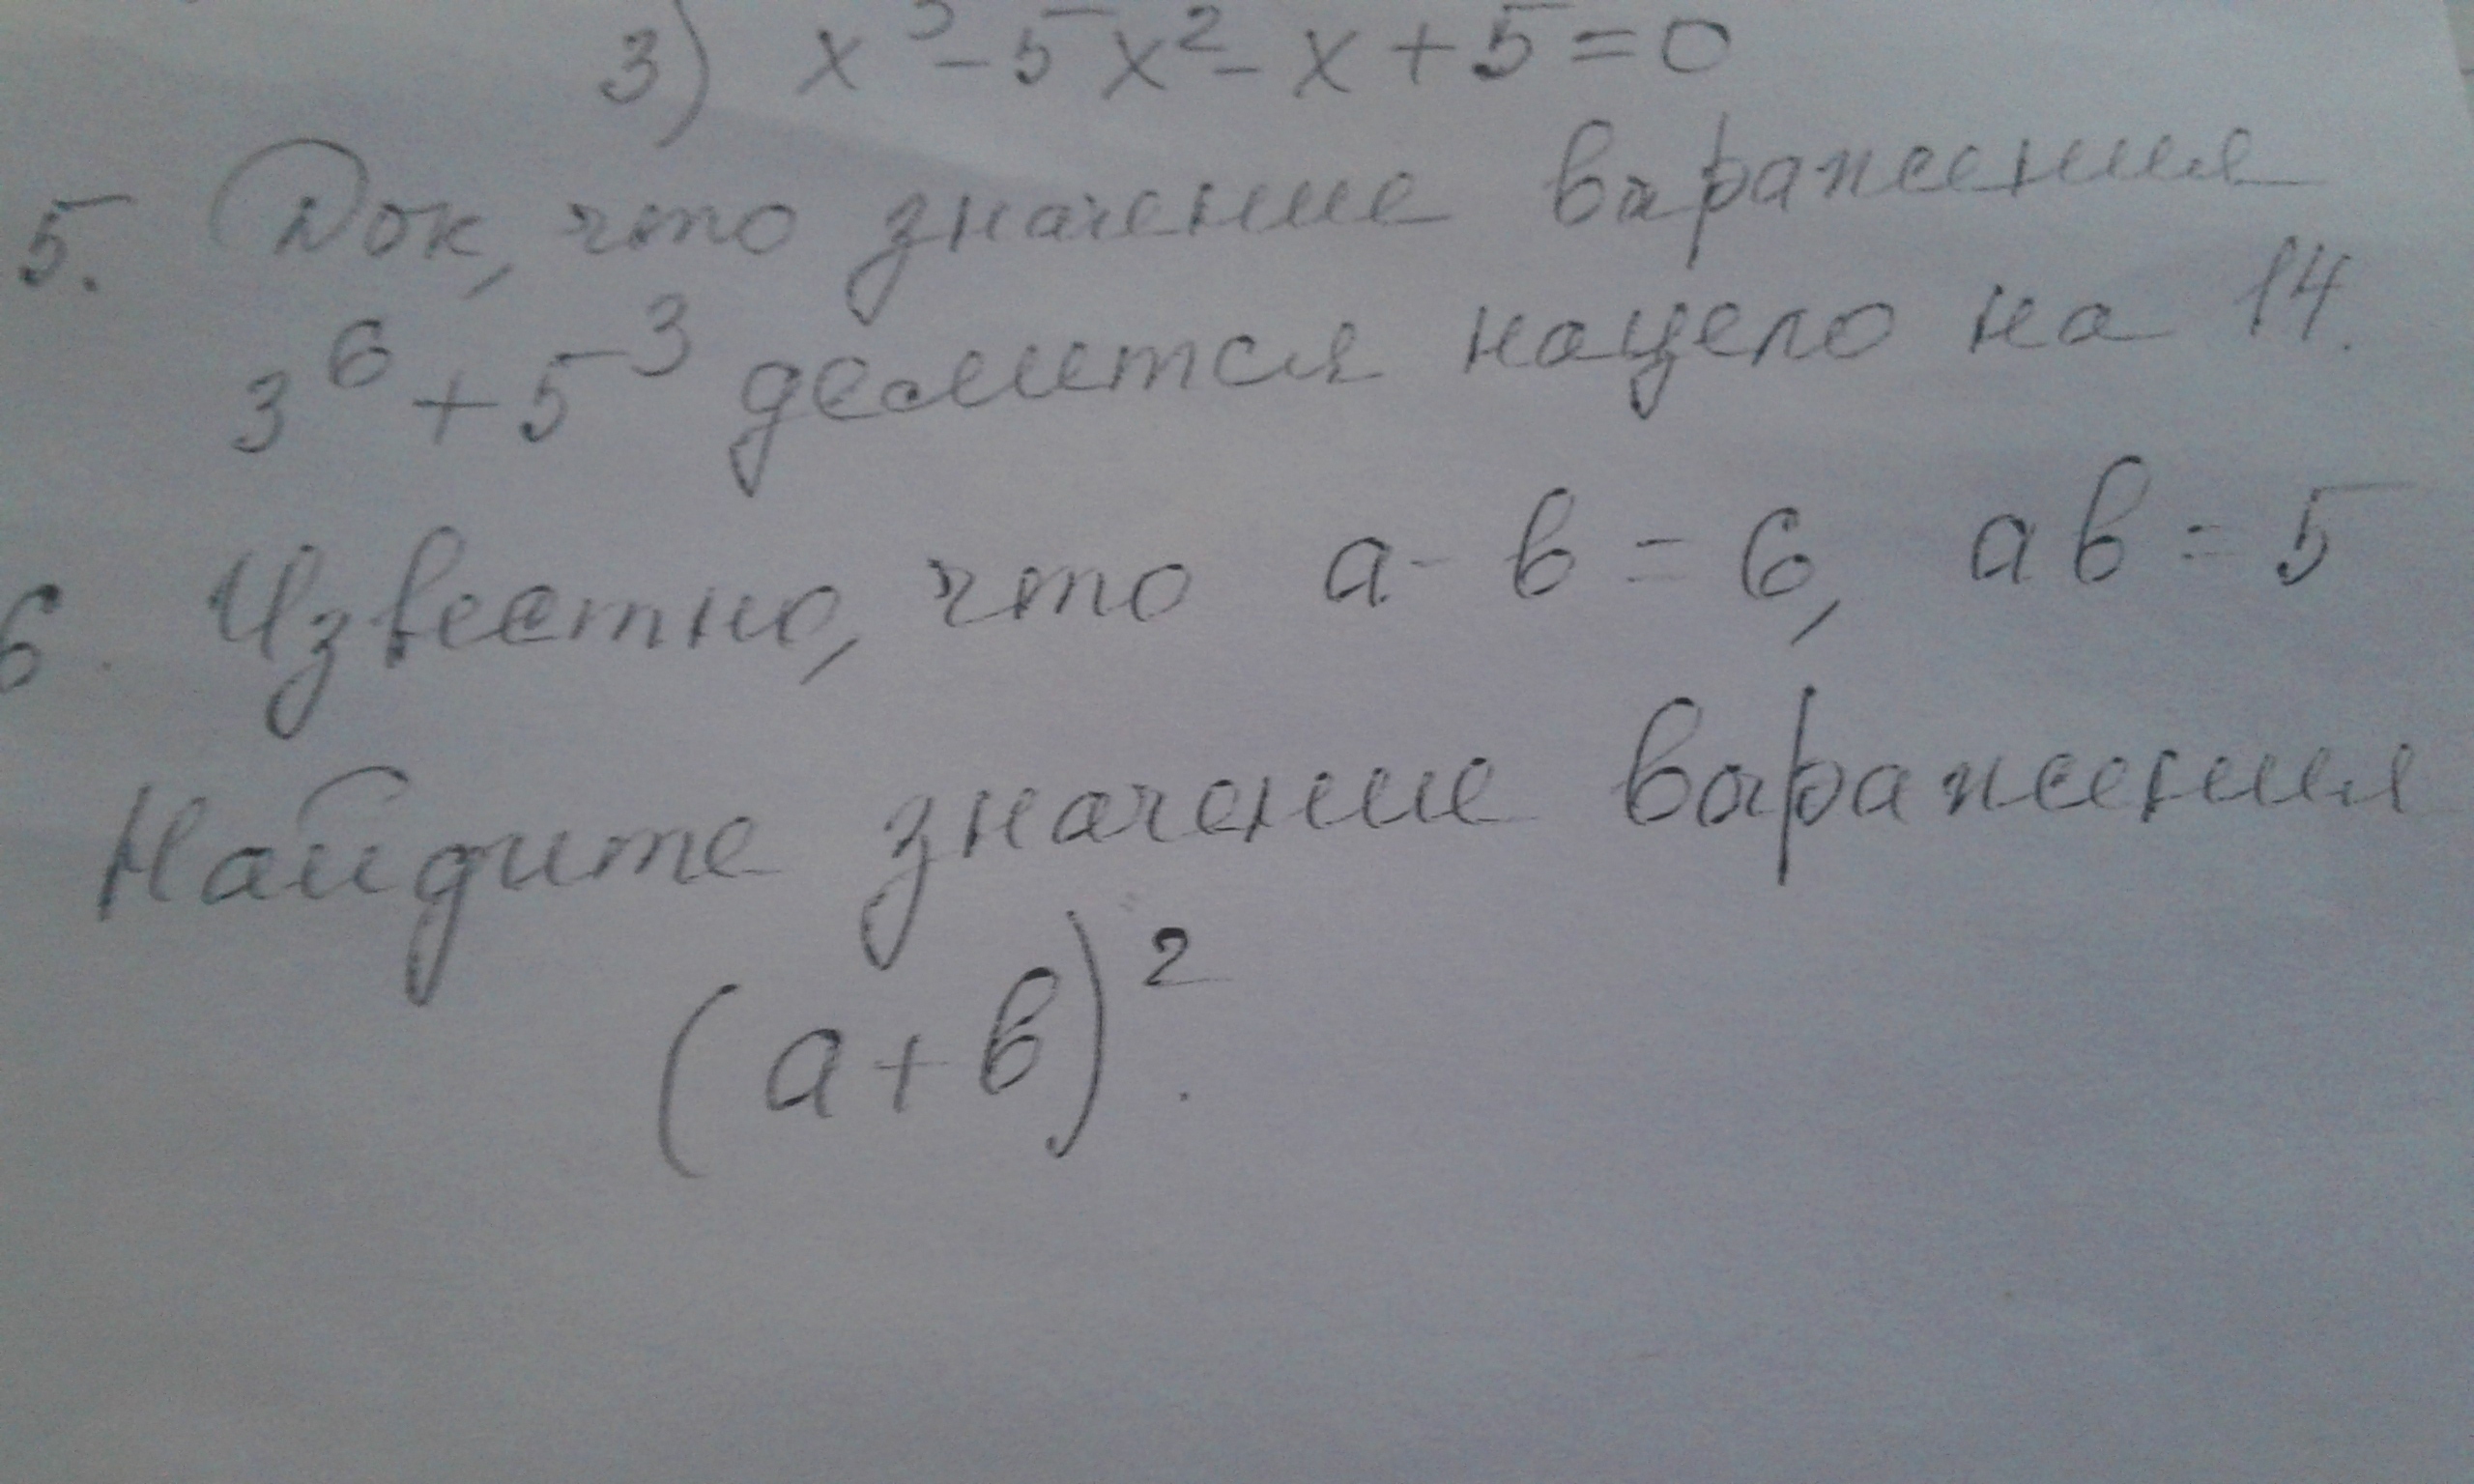 3) x³ - 5x² - x + 5 = 0
5. Док, что значение выражения
3⁶ + 5³ делится нацело на 14.
6. Известно, что a - b = 6, ab = 5
Найдите значение выражения
(a + b)².